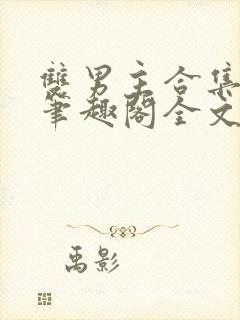 双男主合集
笔趣阁全文
禹影